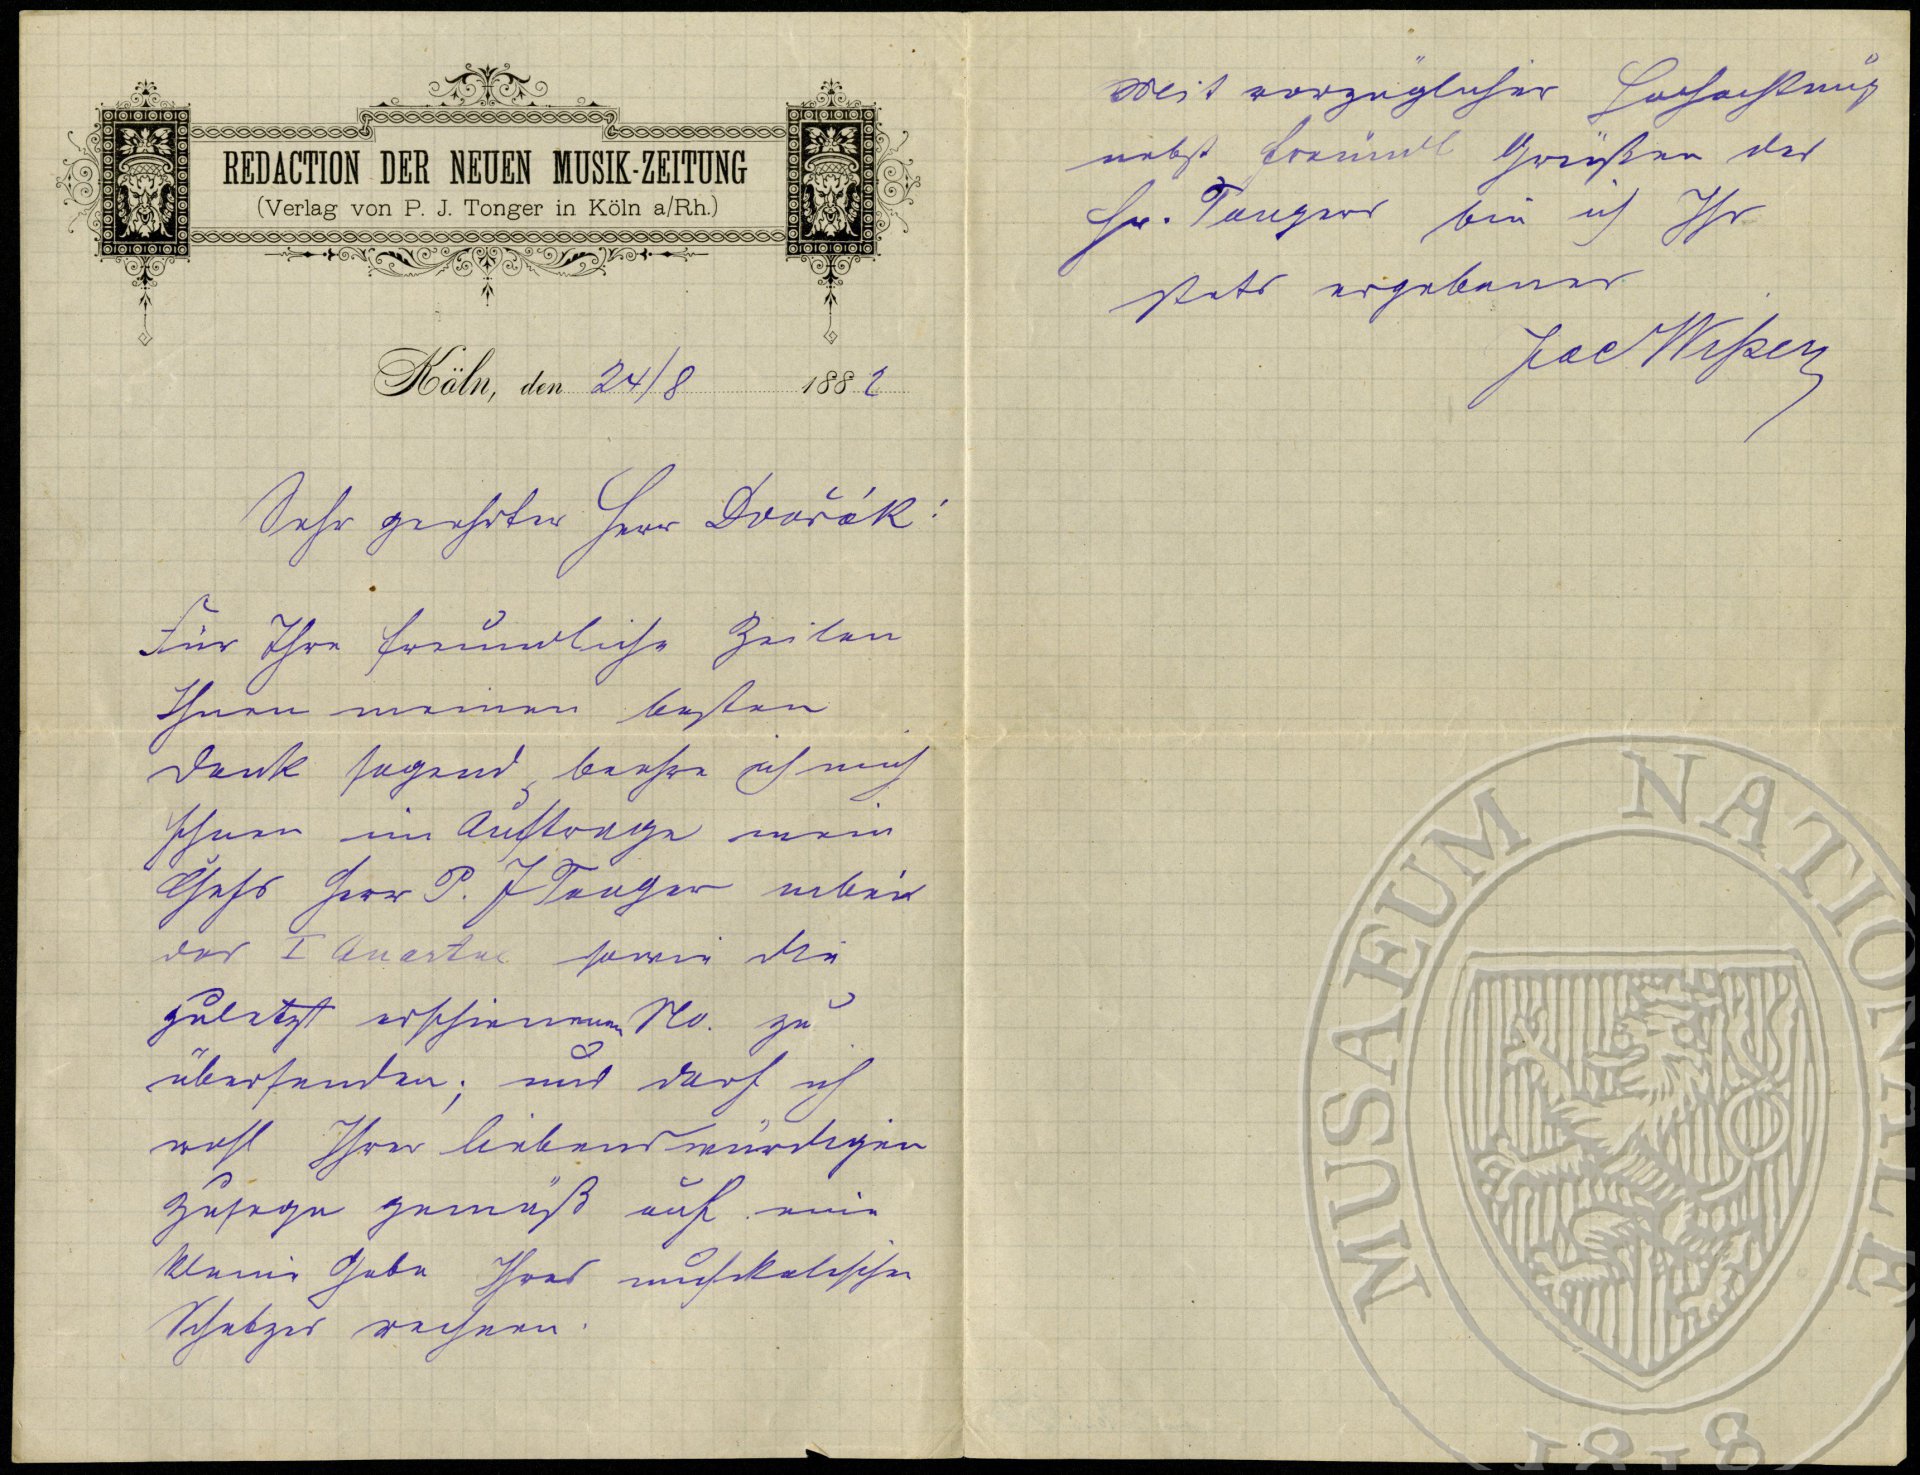 REDACTION DER NEUEN MUSIK-ZEITUNG
(Verlag von P. J. Tonger in Köln a/Rh.)
Köln, den 24/8 1882
Sehr geehrter Herr Dvořák!
Für Ihre freundliche Zeilen
Ihnen meinen besten
Dank sagend, beehre ich mich
Ihnen im Auftrage mein
Chefs Herr P. J Tonger nebein
das I Quartal sowie die
zuletzt erschienenen No. zu
übersenden; und darf ich
wohl Ihrer liebenswürdigen
Zusage gemäß auf eine
kleine Gabe Ihres musikalischen
Schatzes rechnen.
Mit vorzüglicher Hochachtung
nebst freundl Grüßen des
Hr. Tongers bin ich Ihr
stets ergebener
MUSAEUM NATIONALE
1818